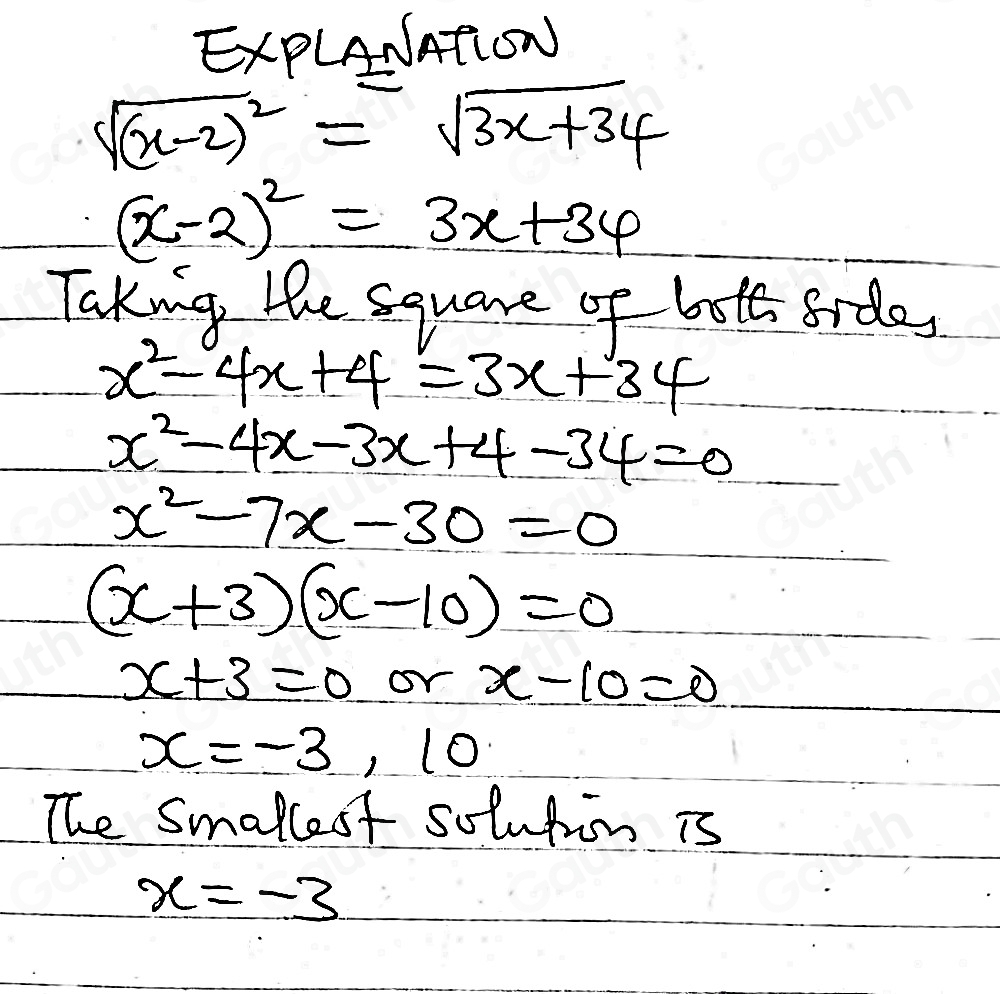 EXPLANATION
√(x-2)² = √3x+34
(x-2)² = 3x+34
Taking the square of both sides
x²-4x+4=3x+34
x²-4x-3x+4-34=0
x²-7x-30=0
(x+3)(x-10)=0
x+3=0 or x-10=0
x=-3, 10
The smallest solution is
x=-3